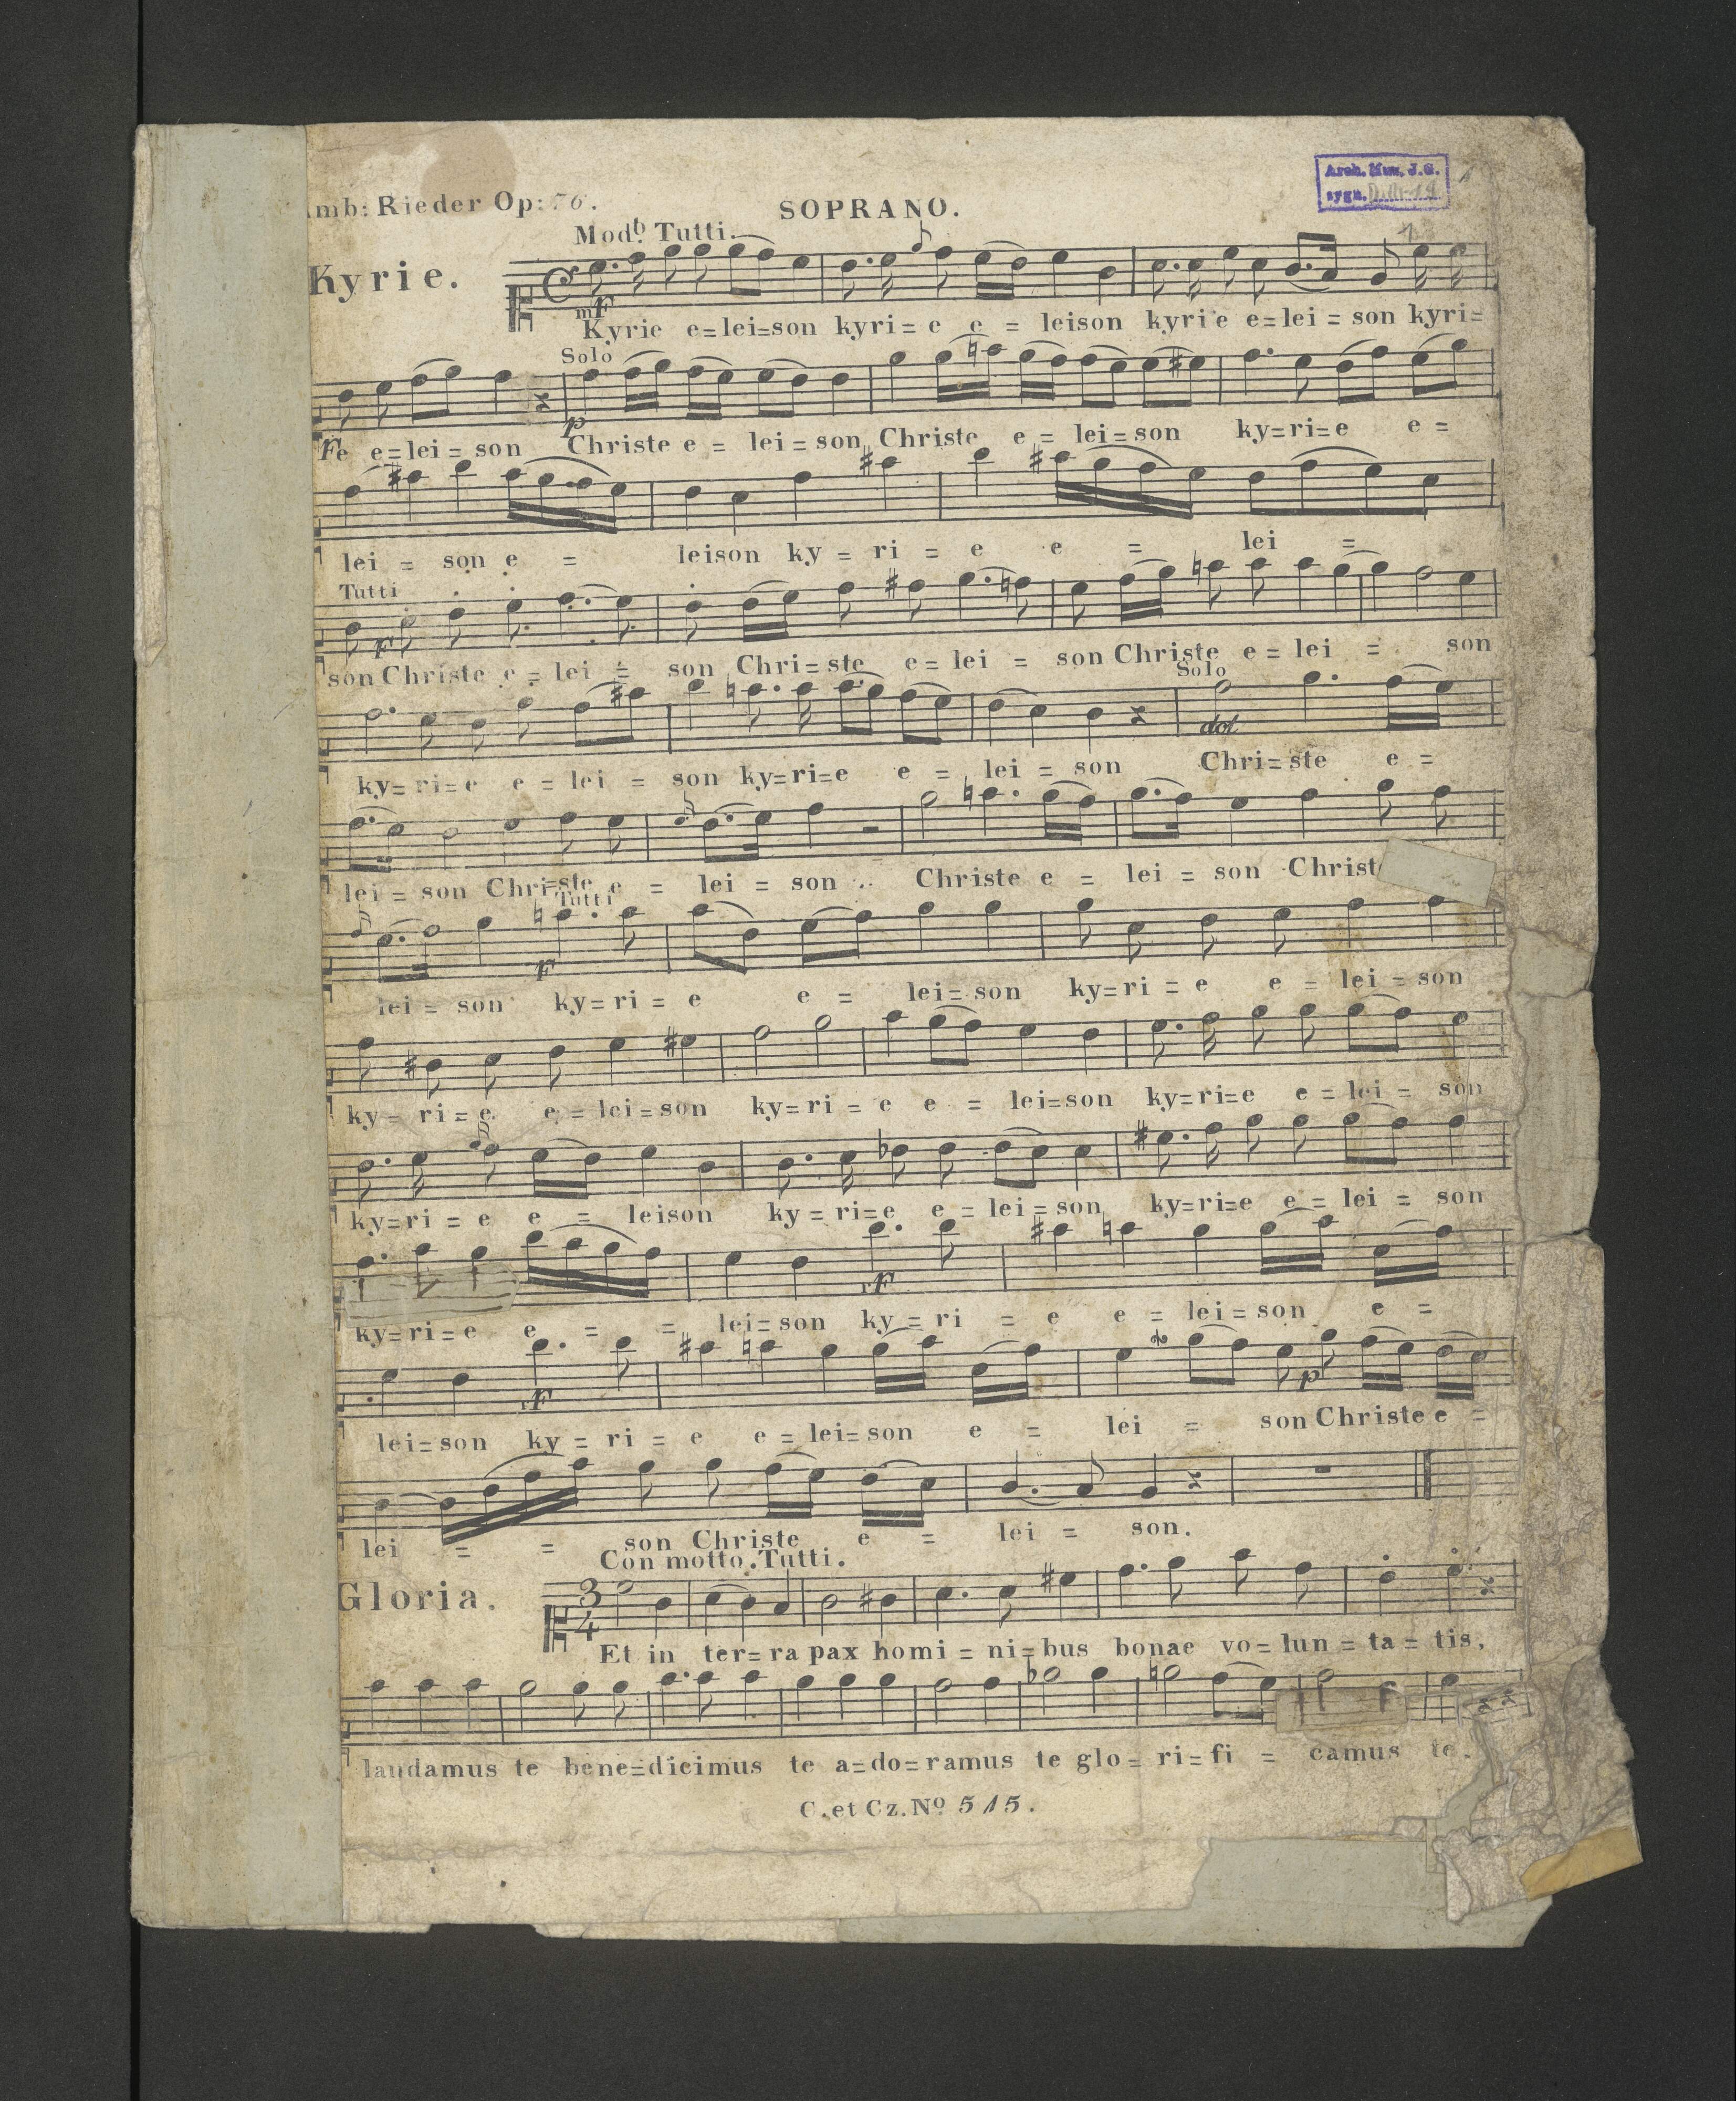 mb: Rieder Op: 76.
SOPRANO.
Arch. Muz. J.G.
sygn.
Mod.to Tutti.
Kyrie.
mF
Kyrie e=lei=son kyri=e e = leison kyrie e=lei=son kyri=
Solo
p
Fe e=lei=son Christe e = lei=son Christe e = lei=son ky=ri=e e =
lei = son e = leison ky = ri = e e = lei =
Tutti
F
son Christe e = lei = son Chri=ste e=lei = son Christe e=lei = son
Solo
dol
ky=ri=e e = lei = son ky=ri=e e = lei = son Chri=ste e =
lei = son Chri=ste e = lei = son Christe e = lei = son Christ
Tutti
F
lei = son ky=ri = e e = lei=son ky=ri = e e = lei = son
ky = ri = e e = lei=son ky=ri = e e = lei=son ky=ri=e e = lei = son
ky=ri = e e = leison ky = ri=e e = lei=son ky=ri=e e = lei = son
rF
ky=ri=e e = = lei=son ky = ri = e e = lei=son e =
rF
p
lei=son ky = ri = e e = lei=son e = lei = son Christe e =
lei = = son Christe e = lei = son.
Con motto. Tutti.
Gloria.
3
4
Et in ter=ra pax homi = ni=bus bonae vo=lun = ta = tis,
laudamus te bene=dicimus te a=do=ramus te glo = ri=fi = camus te.
C. et Cz. No 515.